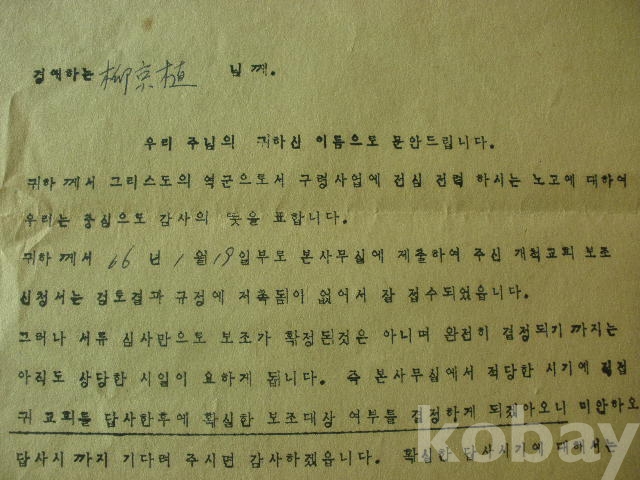 경애하는 柳京植 님께.
우리 주님의 귀하신 이름으로 문안드립니다.
귀하께서 그리스도의 역군으로서 구령사업에 전심 전력 하시는 노고에 대하여
우리는 충심으로 감사의 뜻을 표합니다.
귀하께서 66 년 1 월 19 일부로 본사무실에 제출하여 주신 개척교회 보조
신청서는 검토결과 규정에 저촉됨이 없어서 잘 접수되었읍니다.
그러나 서류 심사만으로 보조가 확정된것은 아니며 완전히 결정되기 까지는
아직도 상당한 시일이 요하게 됩니다. 즉 본사무실에서 적당한 시기에 직접
귀 교회를 답사한후에 확실한 보조대상 여부를 결정하게 되겠아오니 미안하오
답사시 까지 기다려 주시면 감사하겠읍니다. 확실한 답사시기에 대해서는
kobay